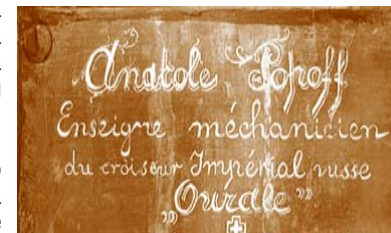 Anatole Popoff
Enseigne méchanicien
du croiseur Impérial russe
„Ourale”